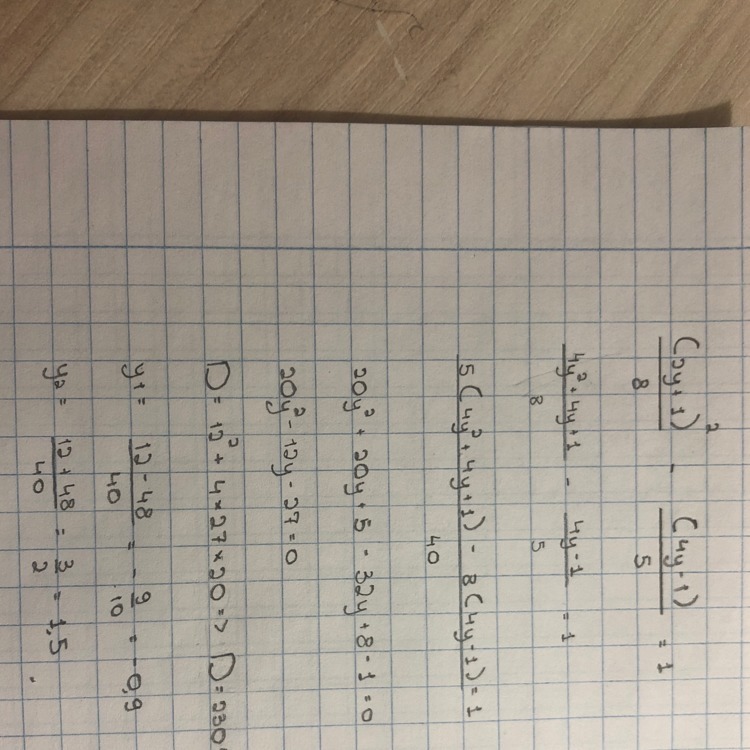 (2y+1)²/8 - (4y-1)/5 = 1
4y²+4y+1/8 - 4y-1/5 = 1
5(4y²+4y+1) - 8(4y-1)/40 = 1
20y² + 20y + 5 - 32y + 8 - 1 = 0
20y² - 12y - 27 = 0
D = 12² + 4×27×20 => D = 230
y1 = 12-48/40 = -9/10 = -0,9
y2 = 12+48/40 = 3/2 = 1,5